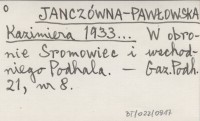 JANCZÓWNA-PAWŁOWSKA
Kazimiera 1933... W obro-
nie Sromowiec i wschod-
niego Podhala. — Gaz. Podh.
21, nr 8.